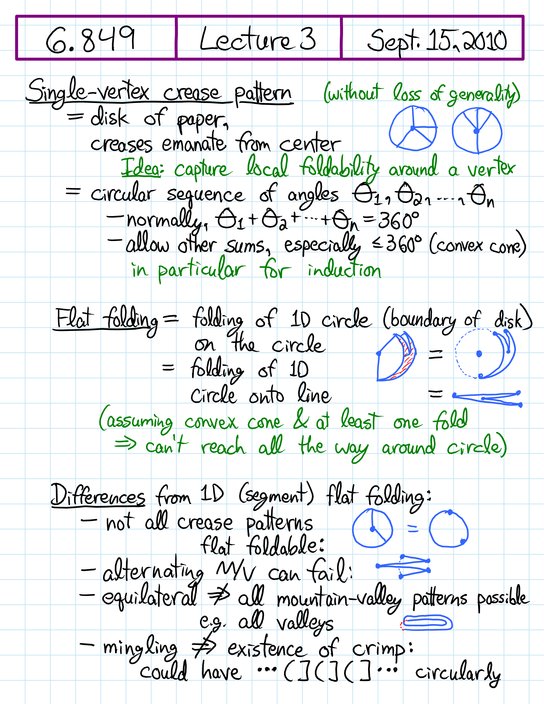 6.849 Lecture 3 Sept. 15, 2010
Single-vertex crease pattern (without loss of generality)
= disk of paper,
creases emanate from center
Idea: capture local foldability around a vertex
= circular sequence of angles Θ₁, Θ₂, ..., Θₙ
– normally, Θ₁ + Θ₂ + ... + Θₙ = 360°
– allow other sums, especially ≤ 360° (convex cone)
in particular for induction
Flat folding = folding of 1D circle (boundary of disk)
on the circle =
= folding of 1D
circle onto line =
(assuming convex cone & at least one fold
⇒ can't reach all the way around circle)
Differences from 1D (segment) flat folding:
– not all crease patterns =
flat foldable:
– alternating M/V can fail:
– equilateral ⇏ all mountain-valley patterns possible
e.g. all valleys
– mingling ⇏ existence of crimp:
could have ... ( ] ( ] ( ] ... circularly